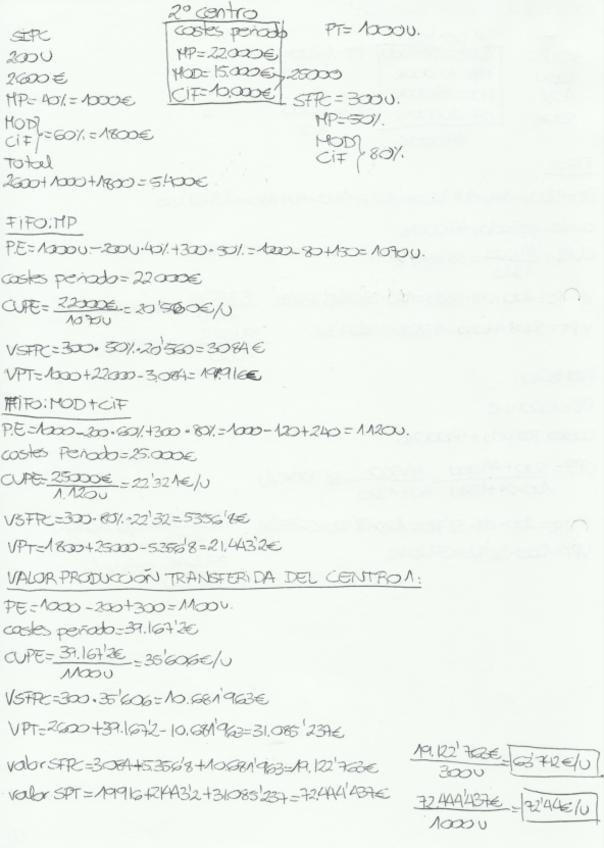 2º centro
SIPC
200U
2600€
MP=40%=1000€
MOD
CIF }=60%=1800€
Total
2600+1000+1800=5.400€
costes periodo
MP=22000€
MOD=15.000€
CIF=10,000€
25000
PT=1000U.
SFPC=300U.
MP=50%.
MOD
CIF } 80%.
FIFO:MP
P.E=1000U-200U·40%+300·50%=1000-80+150=1070U.
costes periodo=22000€
CUPE=22000€/1070U=20'560€/U
VSFPC=300·50%·20'560=3084€
VPT=1000+22000-3,084=19.916€
FIFO:MOD+CIF
P.E=1000-200·60%+300·80%=1000-120+240=1120U.
costes Periodo=25.000€
CUPE=25000€/1.120U=22'321€/U
VSFPC=300·80%·22'32=5356'8€
VPT=1800+25000-5.356'8=21.443'2€
VALOR PRODUCCIÓN TRANSFERIDA DEL CENTRO 1:
PE=1000-200+300=1100U.
costes periodo=39.167'2€
CUPE=39.167'2€/1100U=35'606€/U
VSFPC=300·35'606=10.681'963€
VPT=2600+39.167'2-10.681'963=31.085'237€
valor SFPC=3.084+5.356'8+10.681'963=19.122'763€
valor SPT=19916+21443'2+31.085'237=72.444'437€
19.122'763€/300U=63'742€/U
72.444'437€/1000U=72'44€/U